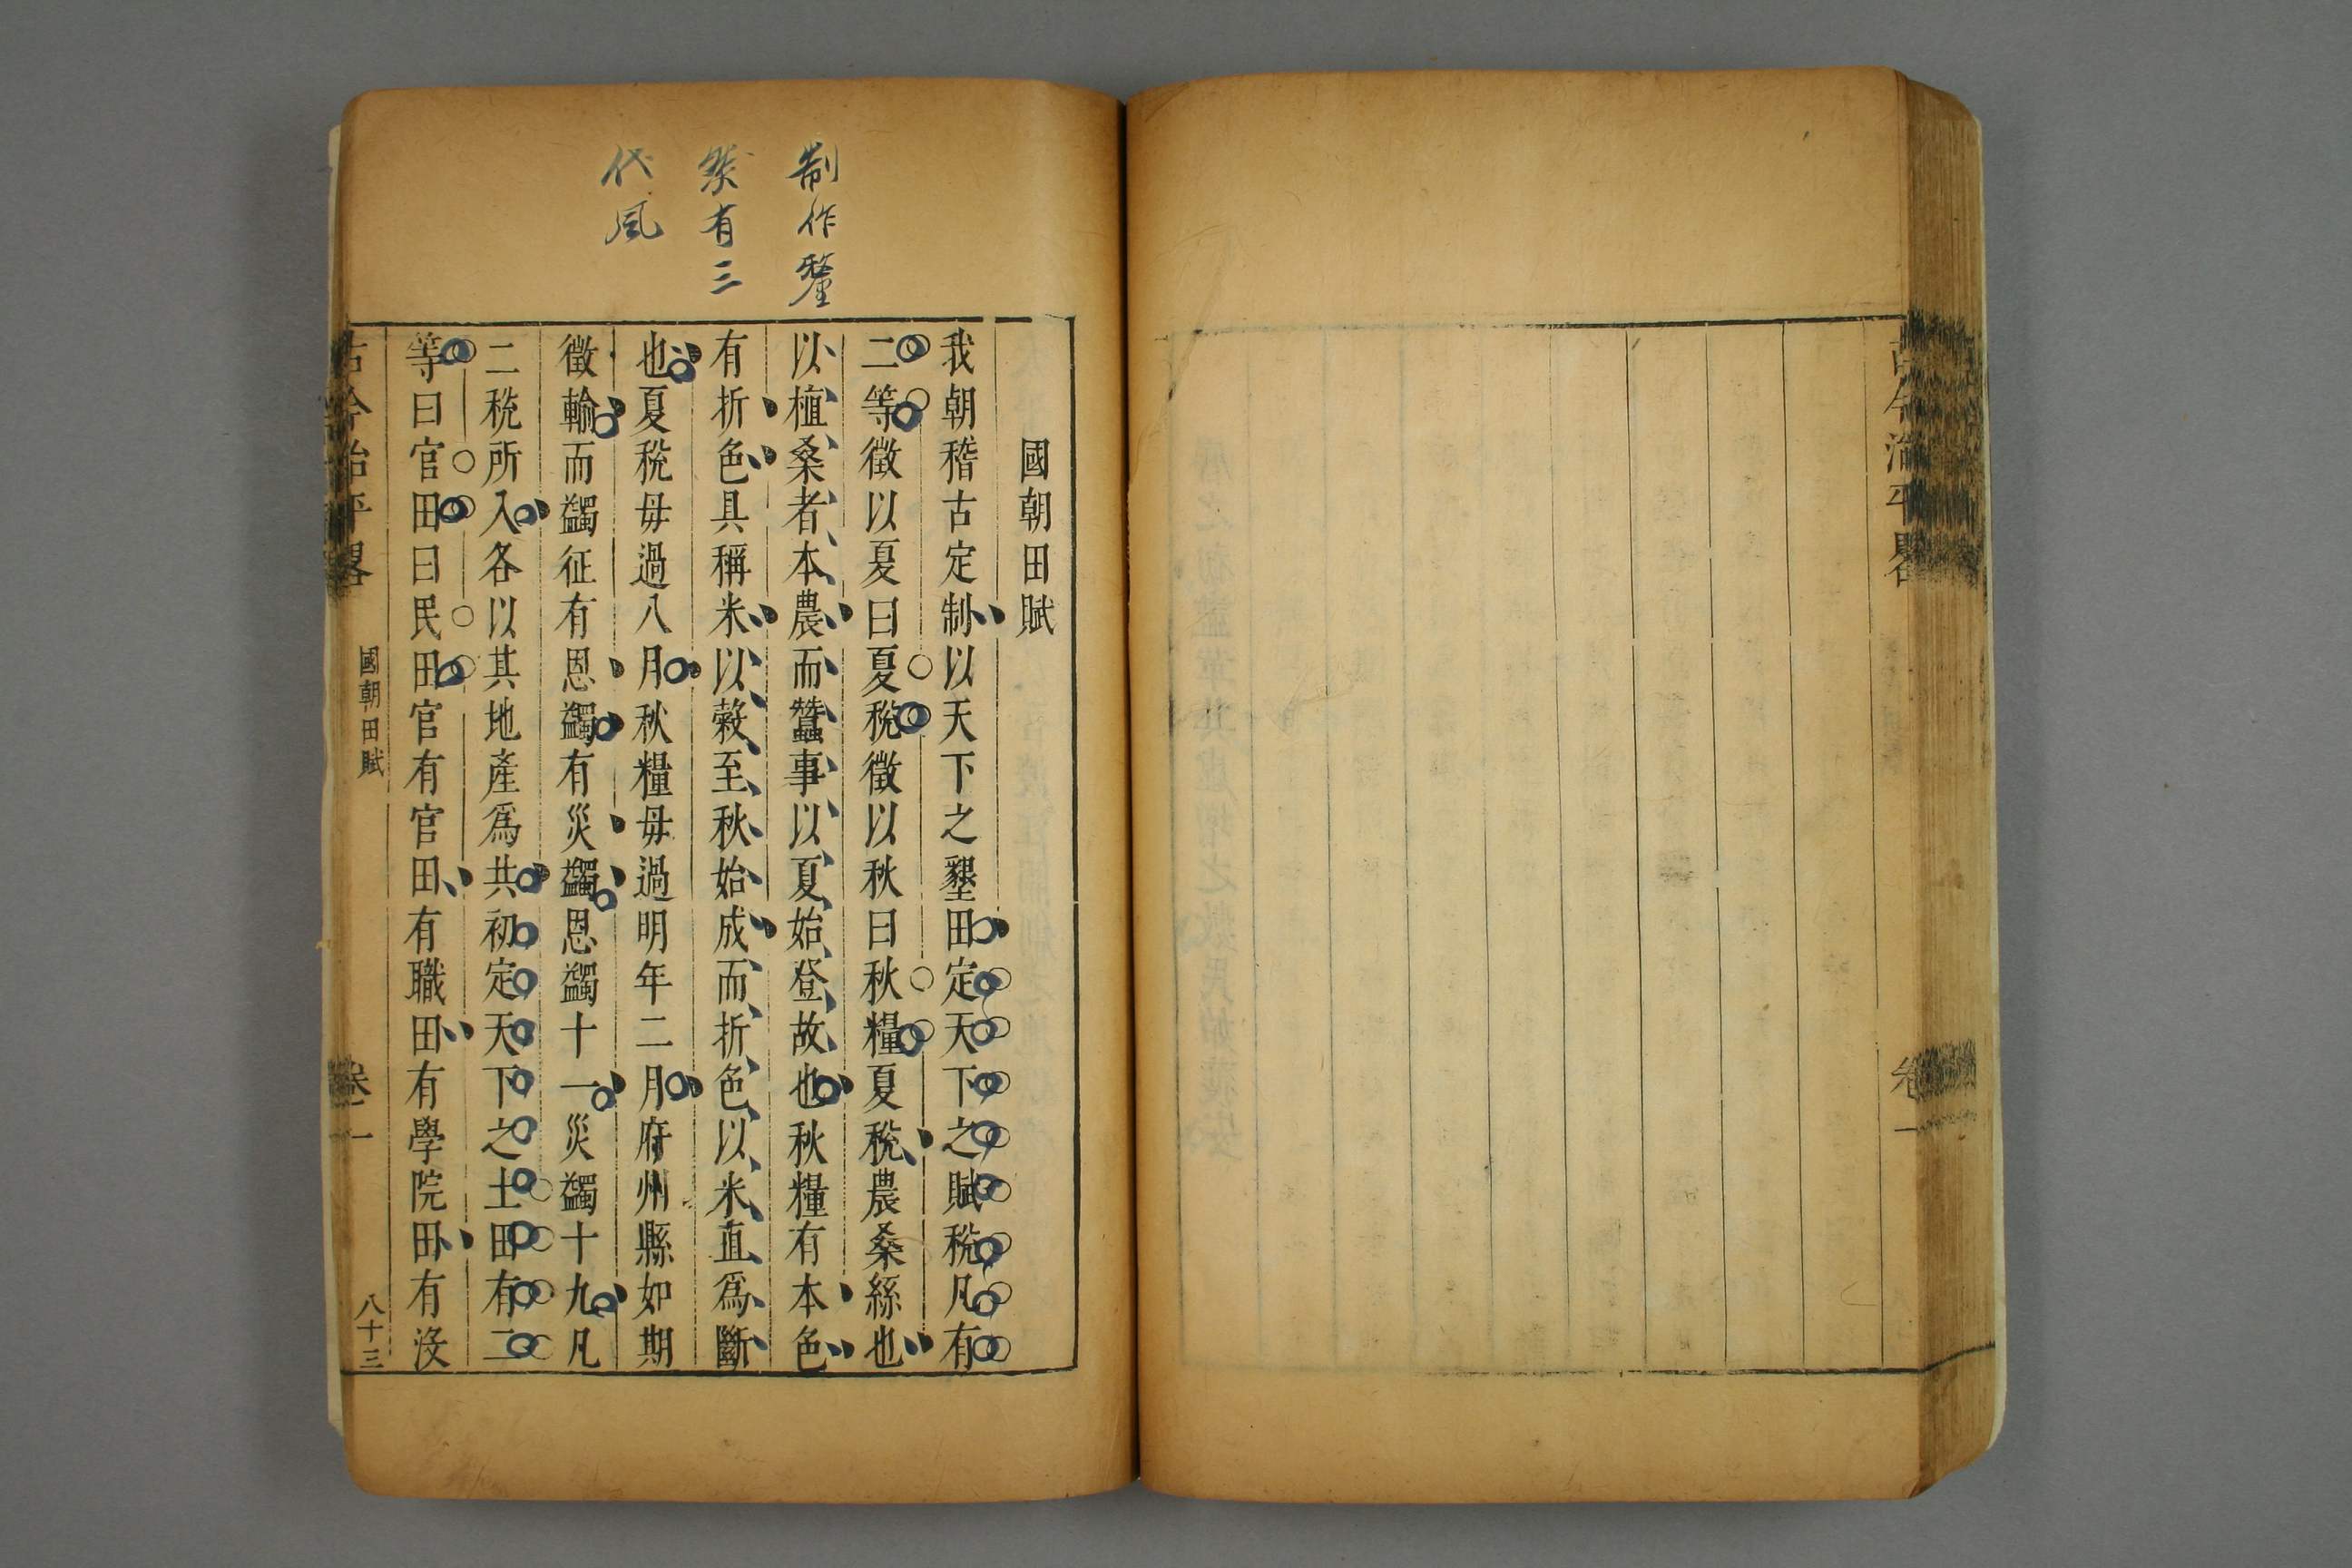 古今治平畧
卷一
制作釐
然有三
代風
國朝田賦
我朝稽古定制以天下之墾田定天下之賦稅凡有
二等徵以夏曰夏稅徵以秋曰秋糧夏稅農桑絲也
以植桑者本農而蠶事以夏始登故也秋糧有本色
有折色具稱米以穀至秋始成而折色以米直爲斷
也夏稅毋過八月秋糧毋過明年二月府州縣如期
徵輸而蠲征有恩蠲有災蠲恩蠲十一災蠲十九凡
二稅所入各以其地產爲共初定天下之土田有二
等曰官田曰民田官有官田有職田有學院田有沒
古今治平畧
國朝田賦
卷一
八十三